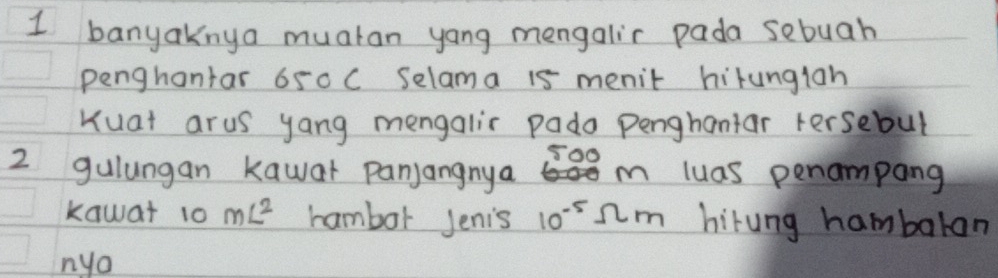 1 banyaknya muatan yang mengalir pada sebuah
penghantar 650 C selama 15 menit hitunglah
kuat arus yang mengalir pada penghantar tersebut
2 gulungan kawat panjangnya 500 m luas penampang
kawat 10 mL² hambat jenis 10⁻⁵ Ωm hitung hambatan
nya